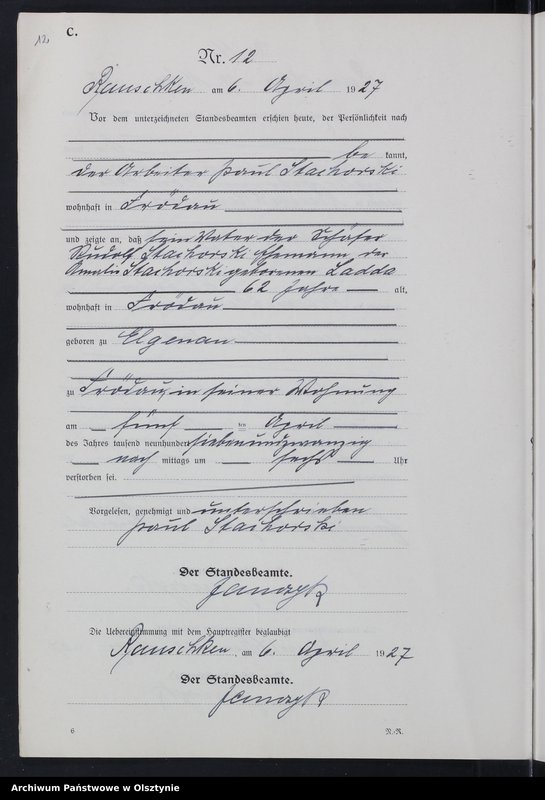 12.
C.
Nr. 12
Rauschken am 6. April 1927
Vor dem unterzeichneten Standesbeamten erschien heute, der Persönlichkeit nach
be kannt,
der Arbeiter Paul Stachorski
wohnhaft in Frödau
und zeigte an, daß sein Vater der Schäfer
Rudolf Stachorski Ehemann der
Amalie Stachorski geborenen Ladda
62 Jahre alt,
wohnhaft in Frödau
geboren zu Elgenau
zu Frödau, in seiner Wohnung
am fünf ten April
des Jahres tausend neunhundert siebenundzwanzig
nach mittags um sechs Uhr
verstorben sei.
Vorgelesen, genehmigt und unterschrieben
Paul Stachorski
Der Standesbeamte.
Die Uebereinstimmung mit dem Hauptregister beglaubigt
Rauschken, am 6. April 1927
Der Standesbeamte.
6 N.-R.
Archiwum Państwowe w Olsztynie